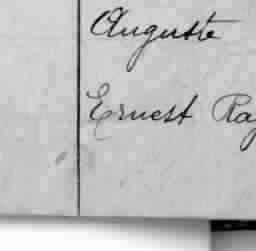 Auguste
Ernest Ray